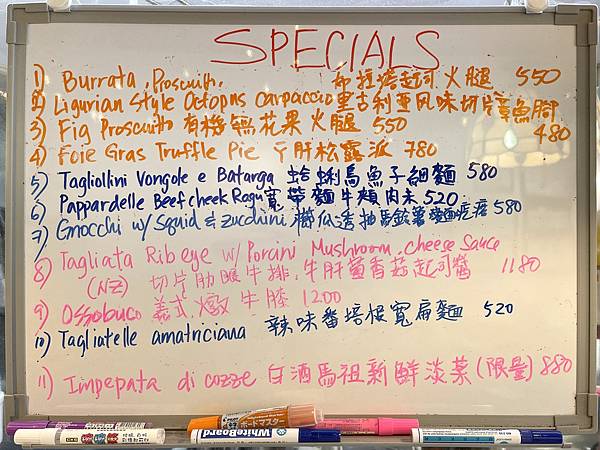 SPECIALS
1) Burrata, Prosciutt. 布拉塔起司火腿 550
2) Ligurian Style Octopus carpaccio 里古利亞風味切片章魚腳 480
3) Fig Prosciutto 有機無花果火腿 550
4) Foie Gras Truffle Pie 干肝松露派 780
5) Tagliollini Vongole e Batarga 蛤蜊烏魚子細麵 580
6) Pappardelle Beef cheek Ragu 寬帶麵牛頰肉末 520
7) Gnocchi w/ Squid & Zucchini 櫛瓜透抽馬鈴薯麵疙瘩 580
8) Tagliata Rib eye w/ Porcini Mushroom, cheese Sauce
(NZ) 切片肋眼牛排, 牛肝菌香菇起司醬 1180
9) Ossobuco 義式燉牛膝 1200
10) Tagliatelle amatriciana 辣味番培根寬扁麵 520
11) Impepata di cozze 白酒馬祖新鮮淡菜 (限量) 880
ボードマスター
WHITEBOARD